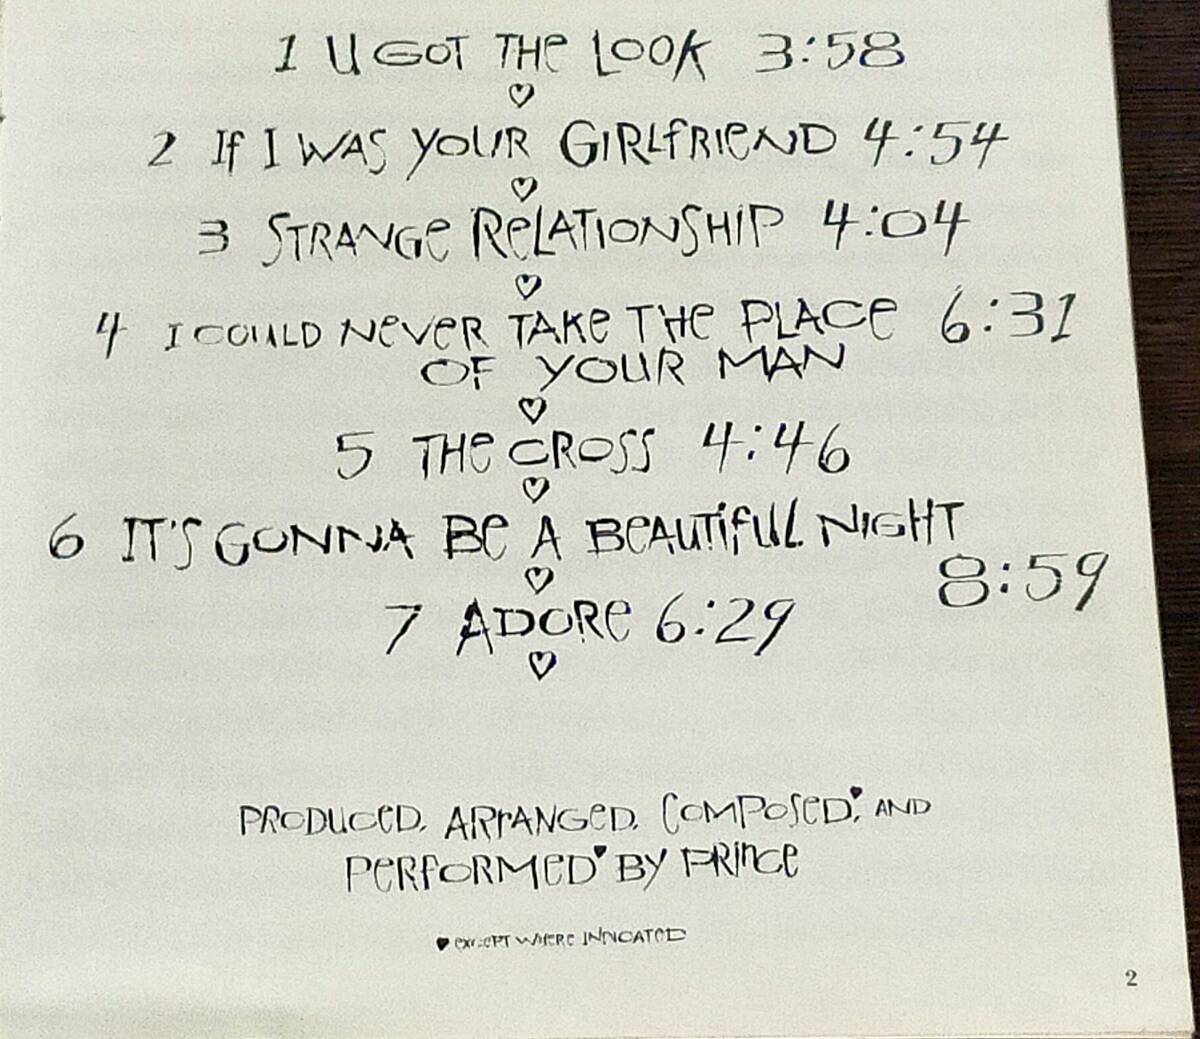 1 U GOT THE LOOK 3:58
2 If I WAS YOUR GIRLfRIEND 4:54
3 STRANGE RELATIONSHIP 4:04
4 I COULD NEVER TAKE THE PLACE 6:31
OF YOUR MAN
5 THE CROSS 4:46
6 IT'S GONNA BE A BEAUTIfUL NIGHT
8:59
7 ADORE 6:29
PRODUCED, ARRANGED, COMPOSED♥, AND
PERFORMED♥ BY PRINCE
♥ EXCEPT WHERE INDICATED
2